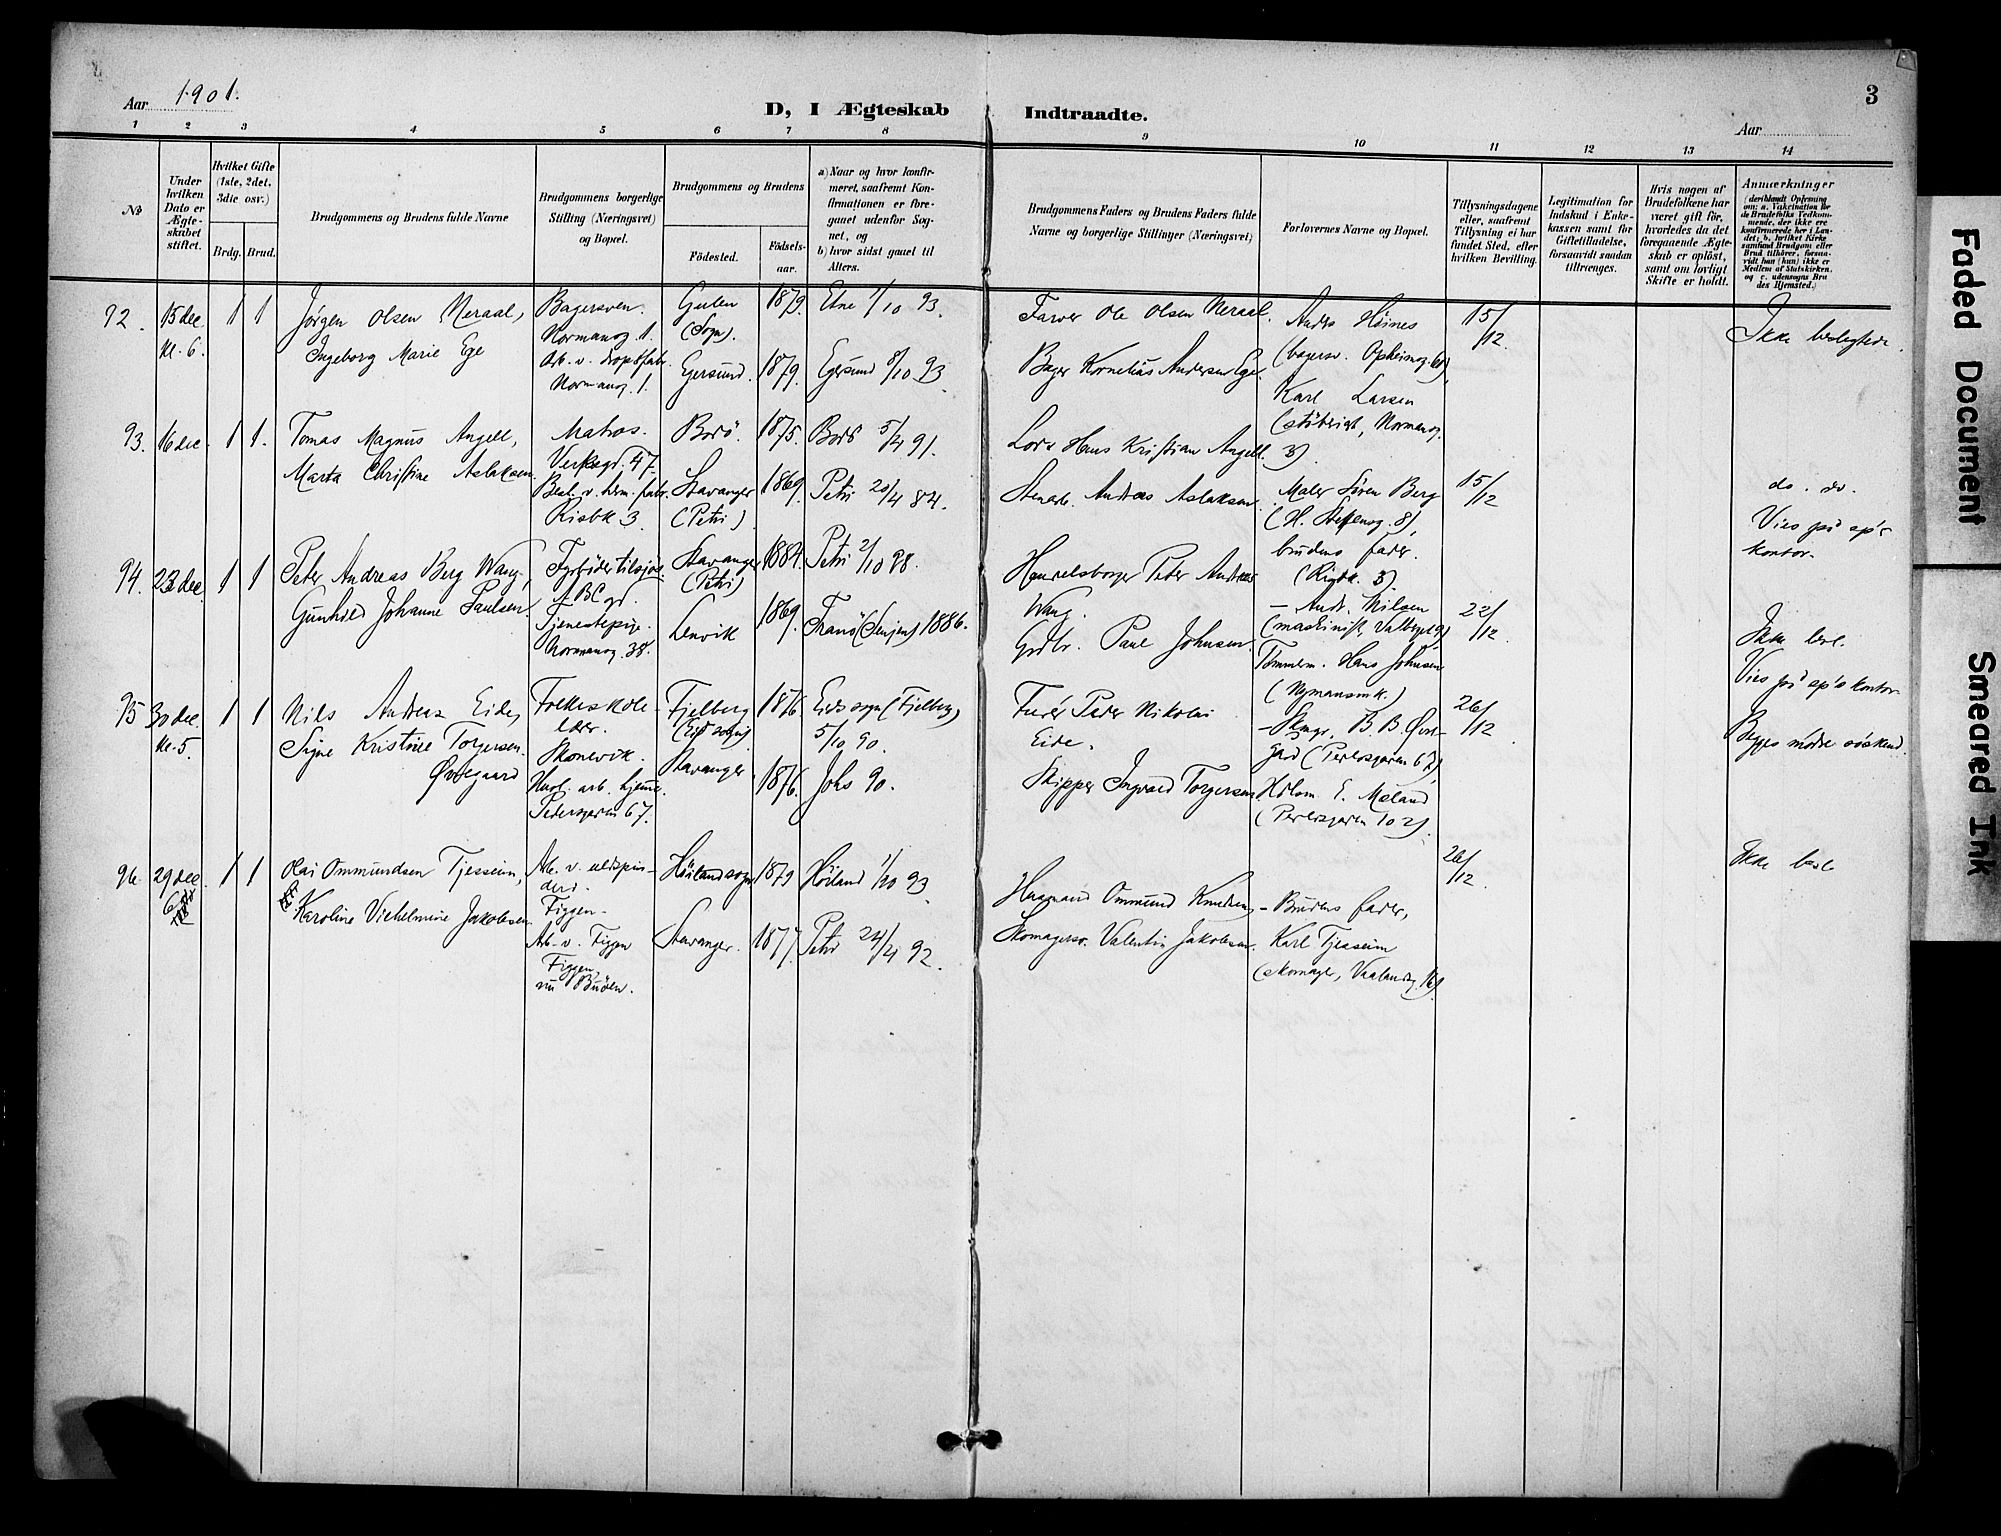 Aar 1901.
D, I Ægteskab Indtraadte.
3
Aar
1 2 3 4 5 6 7 8 9 10 11 12 13 14
No
Under hvilken Dato er Ægteskabet stiftet.
Hvilket Gifte (1ste, 2det, 3die osv.)
Brdg. Brud.
Brudgommens og Brudens fulde Navne
Brudgommens borgerlige Stilling (Næringsvei) og Bopæl.
Brudgommens og Brudens
Födested.
Födselsaar.
a) Naar og hvor konfirmeret, saafremt Konfirmationen er foregaaet udenfor Sognet, og
b) hvor sidst gaaet til Alters.
Brudgommens Faders og Brudens Faders fulde Navne og borgerlige Stillinger (Næringsvei)
Forlovernes Navne og Bopæl.
Tillysningsdagene eller, saafremt Tillysning ei har fundet Sted, efter hvilken Bevilling.
Legitimation for Indskud i Enkekassen samt for Giftetilladelse, forsaavidt saadan tiltrænges.
Hvis nogen af Brudefolkene har været gift för, hvorledes da det foregaaende Ægteskab er oplöst, samt om lovligt Skifte er holdt.
Anmærkninger (deriblandt Oplysning om; a. Vakcination for de Brudefolks Vedkommende, der ikke ere konfirmerede her i Landet; b. hvilket Kirkesamfund Brudgom eller Brud tilhörer, forsaavidt han (hun) ikke er Medlem af Statskirken, og c. udensogns Brudes Hjemsted.)
92. 15 dec. kl. 6. 1 1
Jørgen Olsen Neraal,
Ingeborg Marie Ege
Bagersven.
Normansg 1.
Arb. v. dropsfabr.
Normansg. 1.
Gulen (Sogn). 1879. Etne 1/10 93.
Egersund. 1879. Egersund 8/10 93.
Farver Ole Olsen Neraal.
Bager Kornelius Andersen Ege.
Anders Höines
(bagersv. Opheimsg. 60)
Karl Larsen
(støberiarb, Normansg.
3)
15/12.
Ikke beslegtede.
93. 16 dec. 1 1.
Tomas Magnus Angell,
Marta Christine Aslaksen
Matros.
Verksgd. 47.
Best. v. herm. fabr.
Risbk 3.
Bodö. 1875. Bodö 5/4 91.
Stavanger (Petri). 1869. Petri 20/4 84.
Lods Hans Kristian Angell.
Stenarb. Andreas Aslaksen
Maler Sören Berg
(H. Steffensg. 8),
brudens fader.
(Risbk. 3)
15/12
do. do.
Vies på sp's
kontor.
94. 23 dec. 1 1
Peter Andreas Berg Wang,
Gunhild Johanne Paulsen.
Fyrböder tilsjös
ABC gd.
Tjenestepige.
Normansg. 38.
Stavanger (Petri) 1884. Petri 2/10 98.
Lenvik 1869. Tranö (Senjen) 1886.
Handelsborger Peder Andreas
Wang.
Grdbr. Paul Johnsen.
Andr. Nilsen
(maskinist, Valbergt 9)
Tömmerm. Hans Johnsen
(Nymansmk.)
22/12.
Ikke besl.
Vies på sp's kontor
95 30 dec. kl. 5. 1 1
Nils Andreas Eide,
Signe Kristine Torgersen
Øvregaard
Folkeskole-
lærer.
Skonevik.
Husl. arb. hjemme.
Pedersgaden 67.
Fjelberg (Eid sogn) 1876. Eids sogn (Fjelberg)
5/10 90.
Stavanger 1876. Johs 90.
Peder Nikolai
Eide.
Skipper Ingvald Torgersen
B. B. Øvre-
gård (Pedersgaden 67),
E. Mæland
(Pedersgaden 102).
26/12.
Begges mödre söskend.
96. 29 dec. 6 1 1
Olai Ommundsen Tjessem,
Karoline Vilhelmine Jakobsen
Arb. v. uldspin-
deri.
Figgen.
Arb. v. Figgen
Figgen,
nu Buöen.
Höiland sogn 1879 Höiland 1/10 93.
Stavanger. 1877. Petri 24/4 92.
Husmand Ommund Knudsen
Skomagersv. Valentin Jakobsen.
Brudens fader,
Karl Tjessem
(skomager, Vaalandsg. 16).
26/12.
Ikke besl.
Faded Document
Smeared Ink